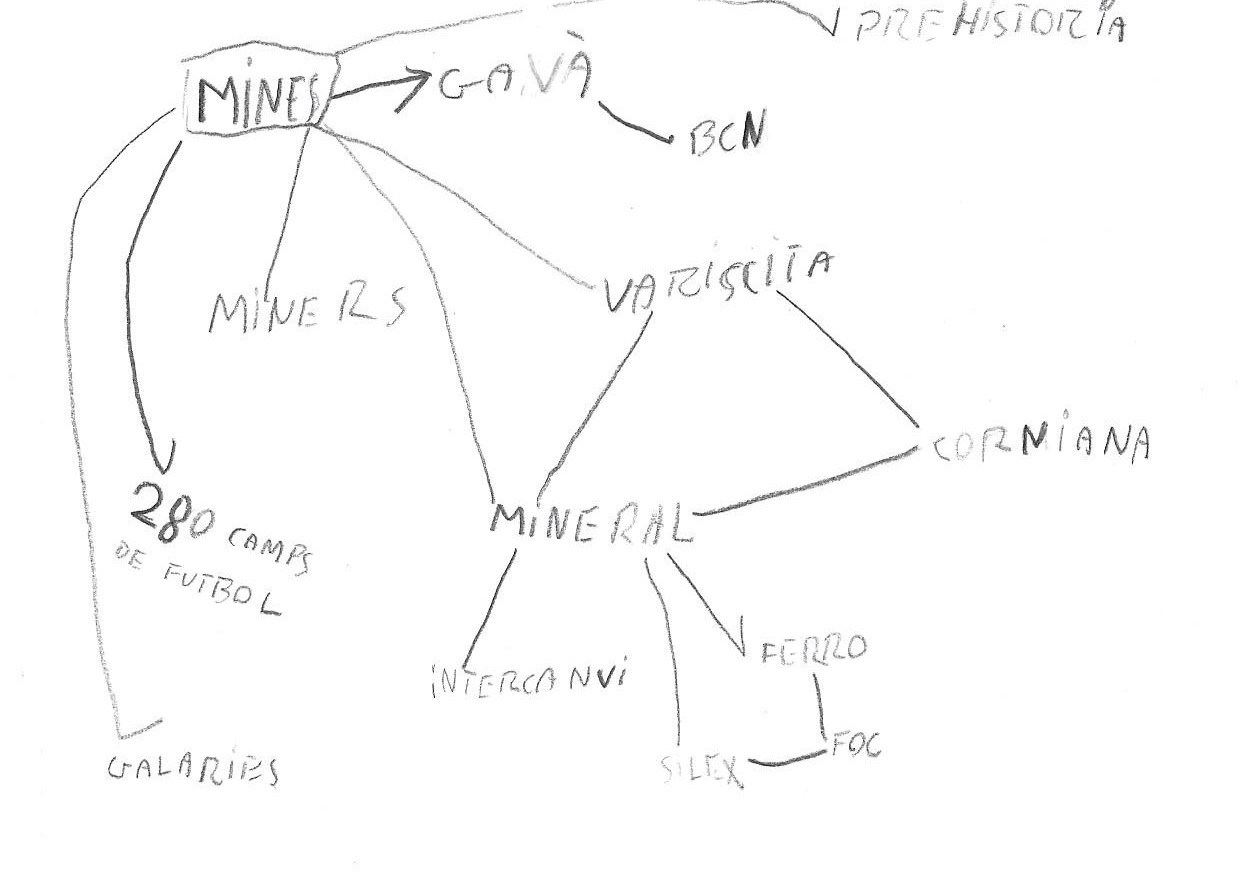 PREHISTORIA
MINES
GAVÀ
BCN
VARISCITA
MINERS
CORNIANA
280 CAMPS
DE FUTBOL
MINERAL
FERRO
INTERCANVI
FOC
SILEX
GALARIES